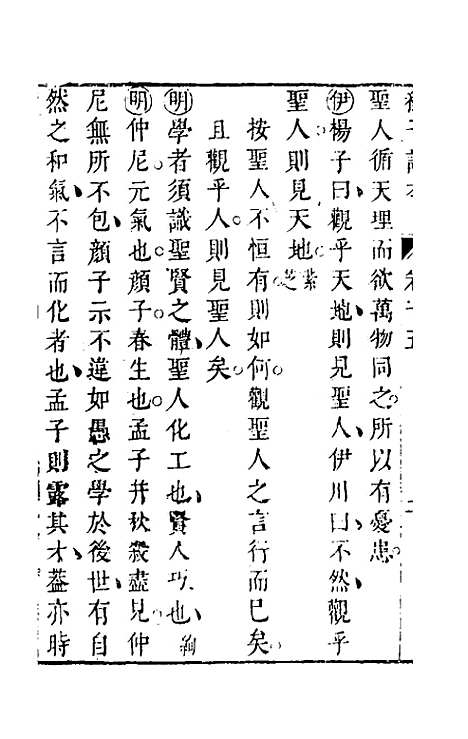 聖人循天理而欲萬物同之所以有憂患
伊楊子曰觀乎天地則見聖人伊川曰不然觀乎
聖人則見天地
按聖人不恒有則如何觀聖人之言行而已矣
且觀乎人則見聖人矣
明學者須識聖賢之體聖人化工也賢人巧也
明仲尼元氣也顔子春生也孟子并秋殺盡見仲
尼無所不包顔子示不違如愚之學於後世有自
然之和氣不言而化者也孟子則露其才葢亦時